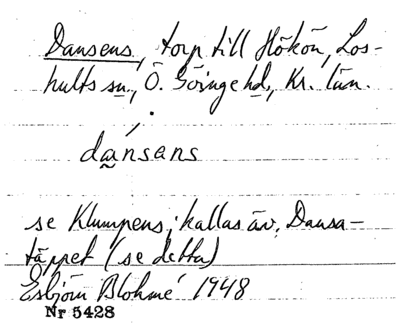 Dansens, torp till Hökön, Los-
hults sn., Ö. Göinge hd., Kr. län.
dansens
se Klumpens; kallas äv. Dansa-
täppet (se detta)
Esbjörn Blohmé 1948
Nr 5428